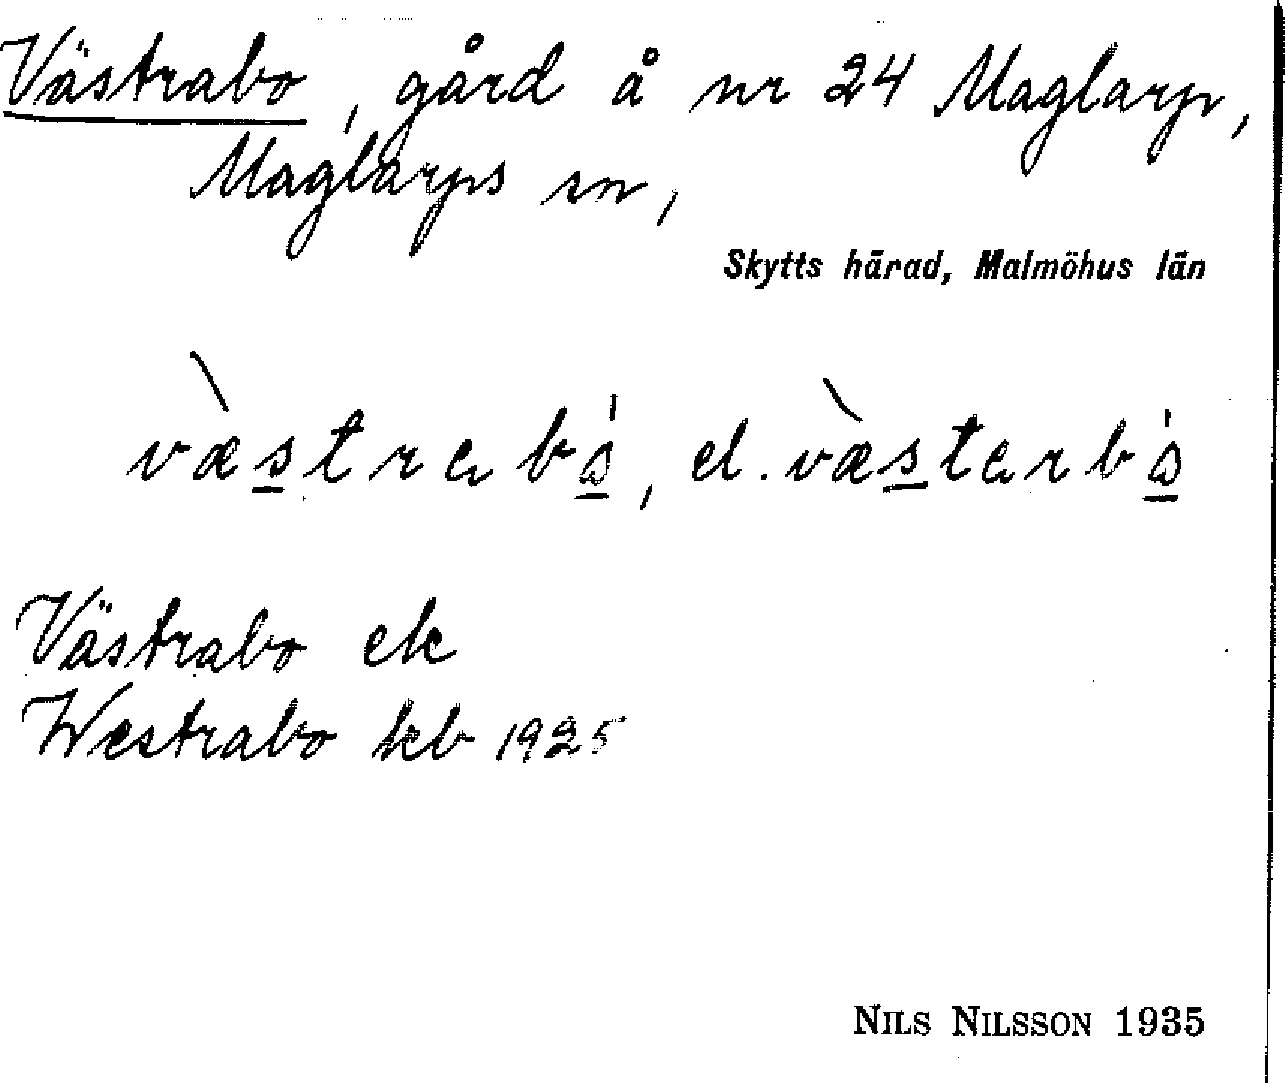 Västrabo, gård å nr 24 Maglarp,
Maglarps sn,
Skytts härad, Malmöhus län
el.
Västrabo ek
Westrabo kb 1925
NILS NILSSON 1935